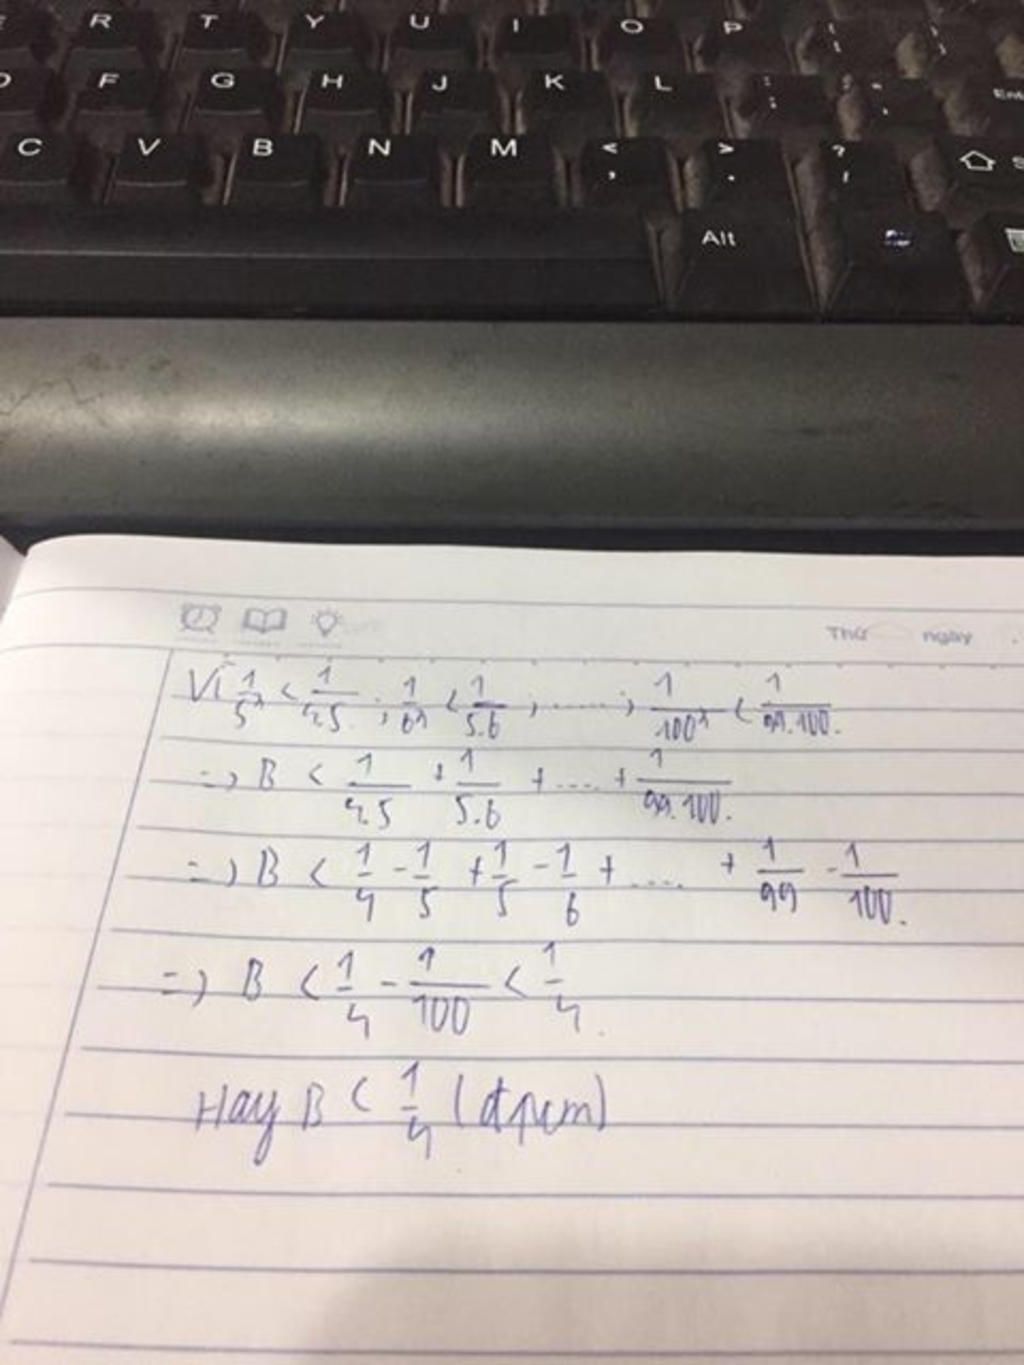 E R T Y U I O P { [ } ]
D F G H J K L : ; " ' Ent
C V B N M < , > . ? / S
Alt
Thứ ngày
Vì 1/5² < 1/4.5 ; 1/6² < 1/5.6 ; ..... ; 1/100² < 1/99.100.
=> B < 1/4.5 + 1/5.6 + .... + 1/99.100.
=> B < 1/4 - 1/5 + 1/5 - 1/6 + .... + 1/99 - 1/100.
=> B < 1/4 - 1/100 < 1/4.
Hay B < 1/4 (đpcm)